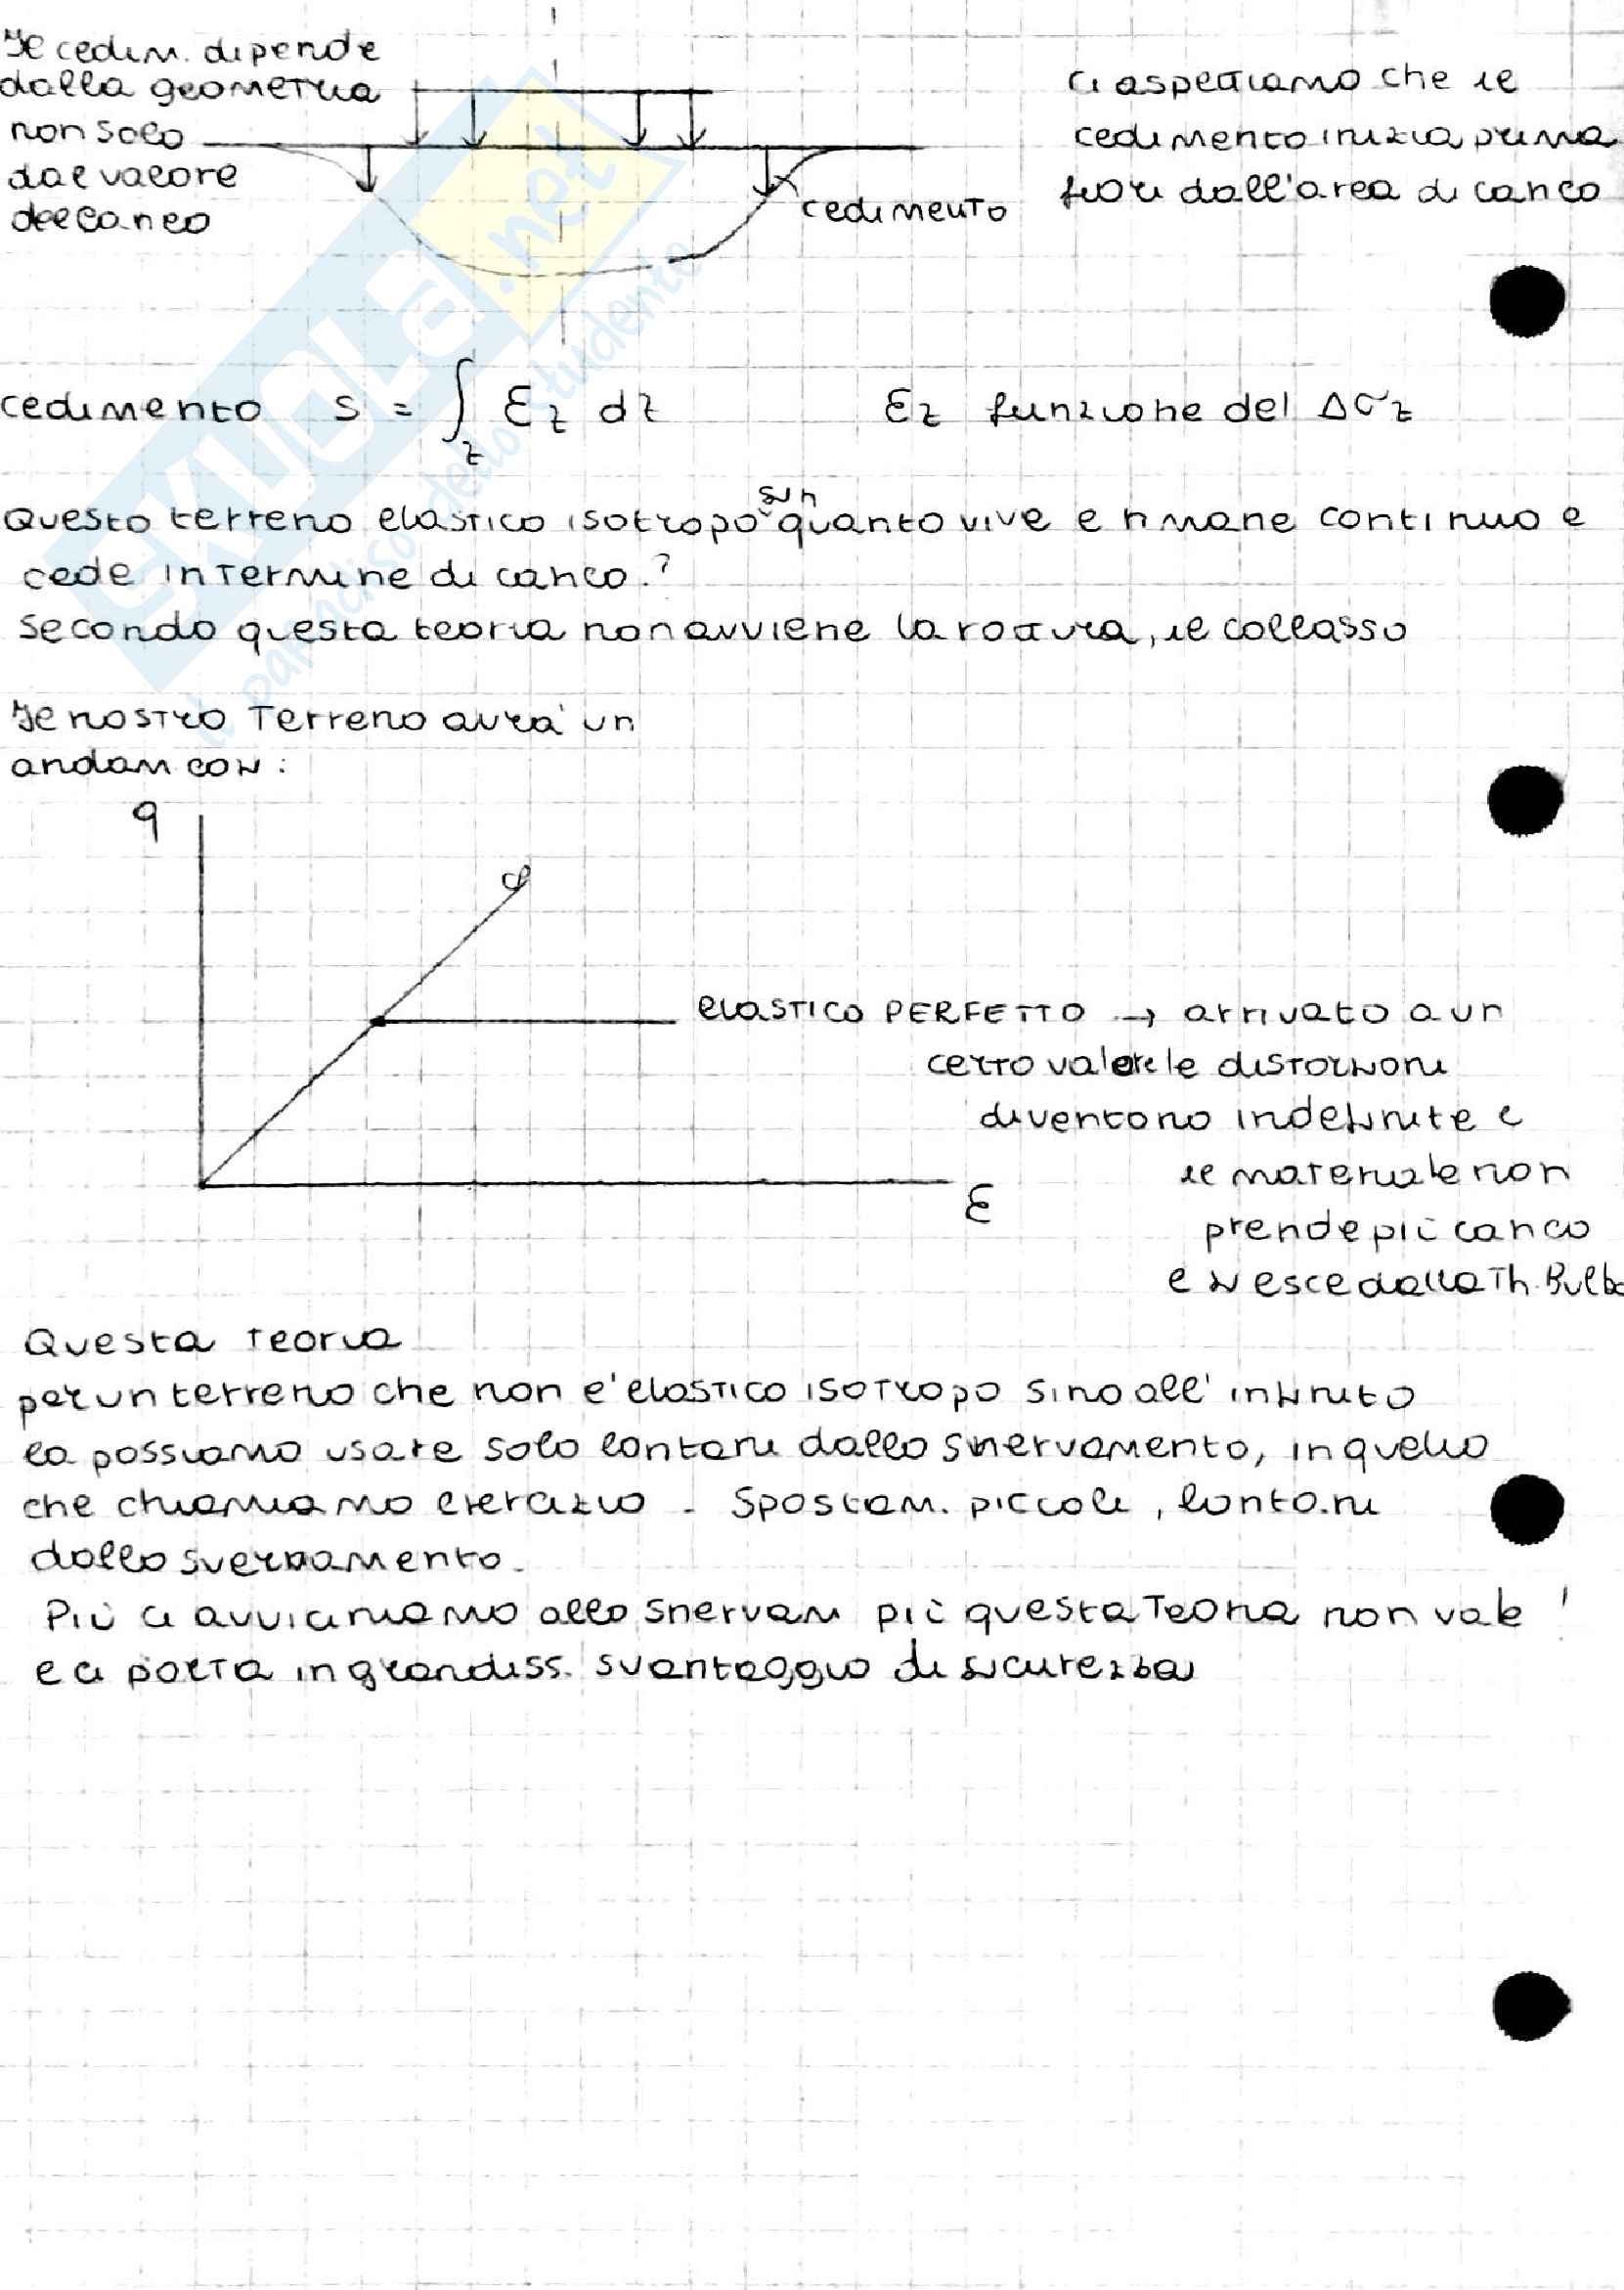 Il cedim. dipende
dalla geometria
non solo
dal valore
del carico
ci aspettiamo che il
cedimento inizia prima
fuori dall'area di carico
cedimento
cedimento s = ∫z εz dz
εz funzione del Δσz
Questo terreno elastico isotropo sin quanto vive e rimane continuo e
cede in termine di carico.?
Secondo questa teoria non avviene la rottura, il collasso
Il nostro terreno avrà un
andam così:
q
ELASTICO PERFETTO → arrivato a un
certo valore le distorsioni
diventano indefinite e
il materiale non
prende più carico
e si esce dalla Th. Bulbo
ε
Questa teoria
per un terreno che non e' elastico isotropo sino all' infinito
la possiamo usare solo lontani dallo snervamento, in quello
che chiamiamo esercizio - Spostam. piccoli, lontani
dallo snervamento.
Più ci avviciniamo allo snervam più questa Teoria non vale !
e ci porta in grandiss. svantaggio di sicurezza
SKUOLA.net
il paradiso dello studente